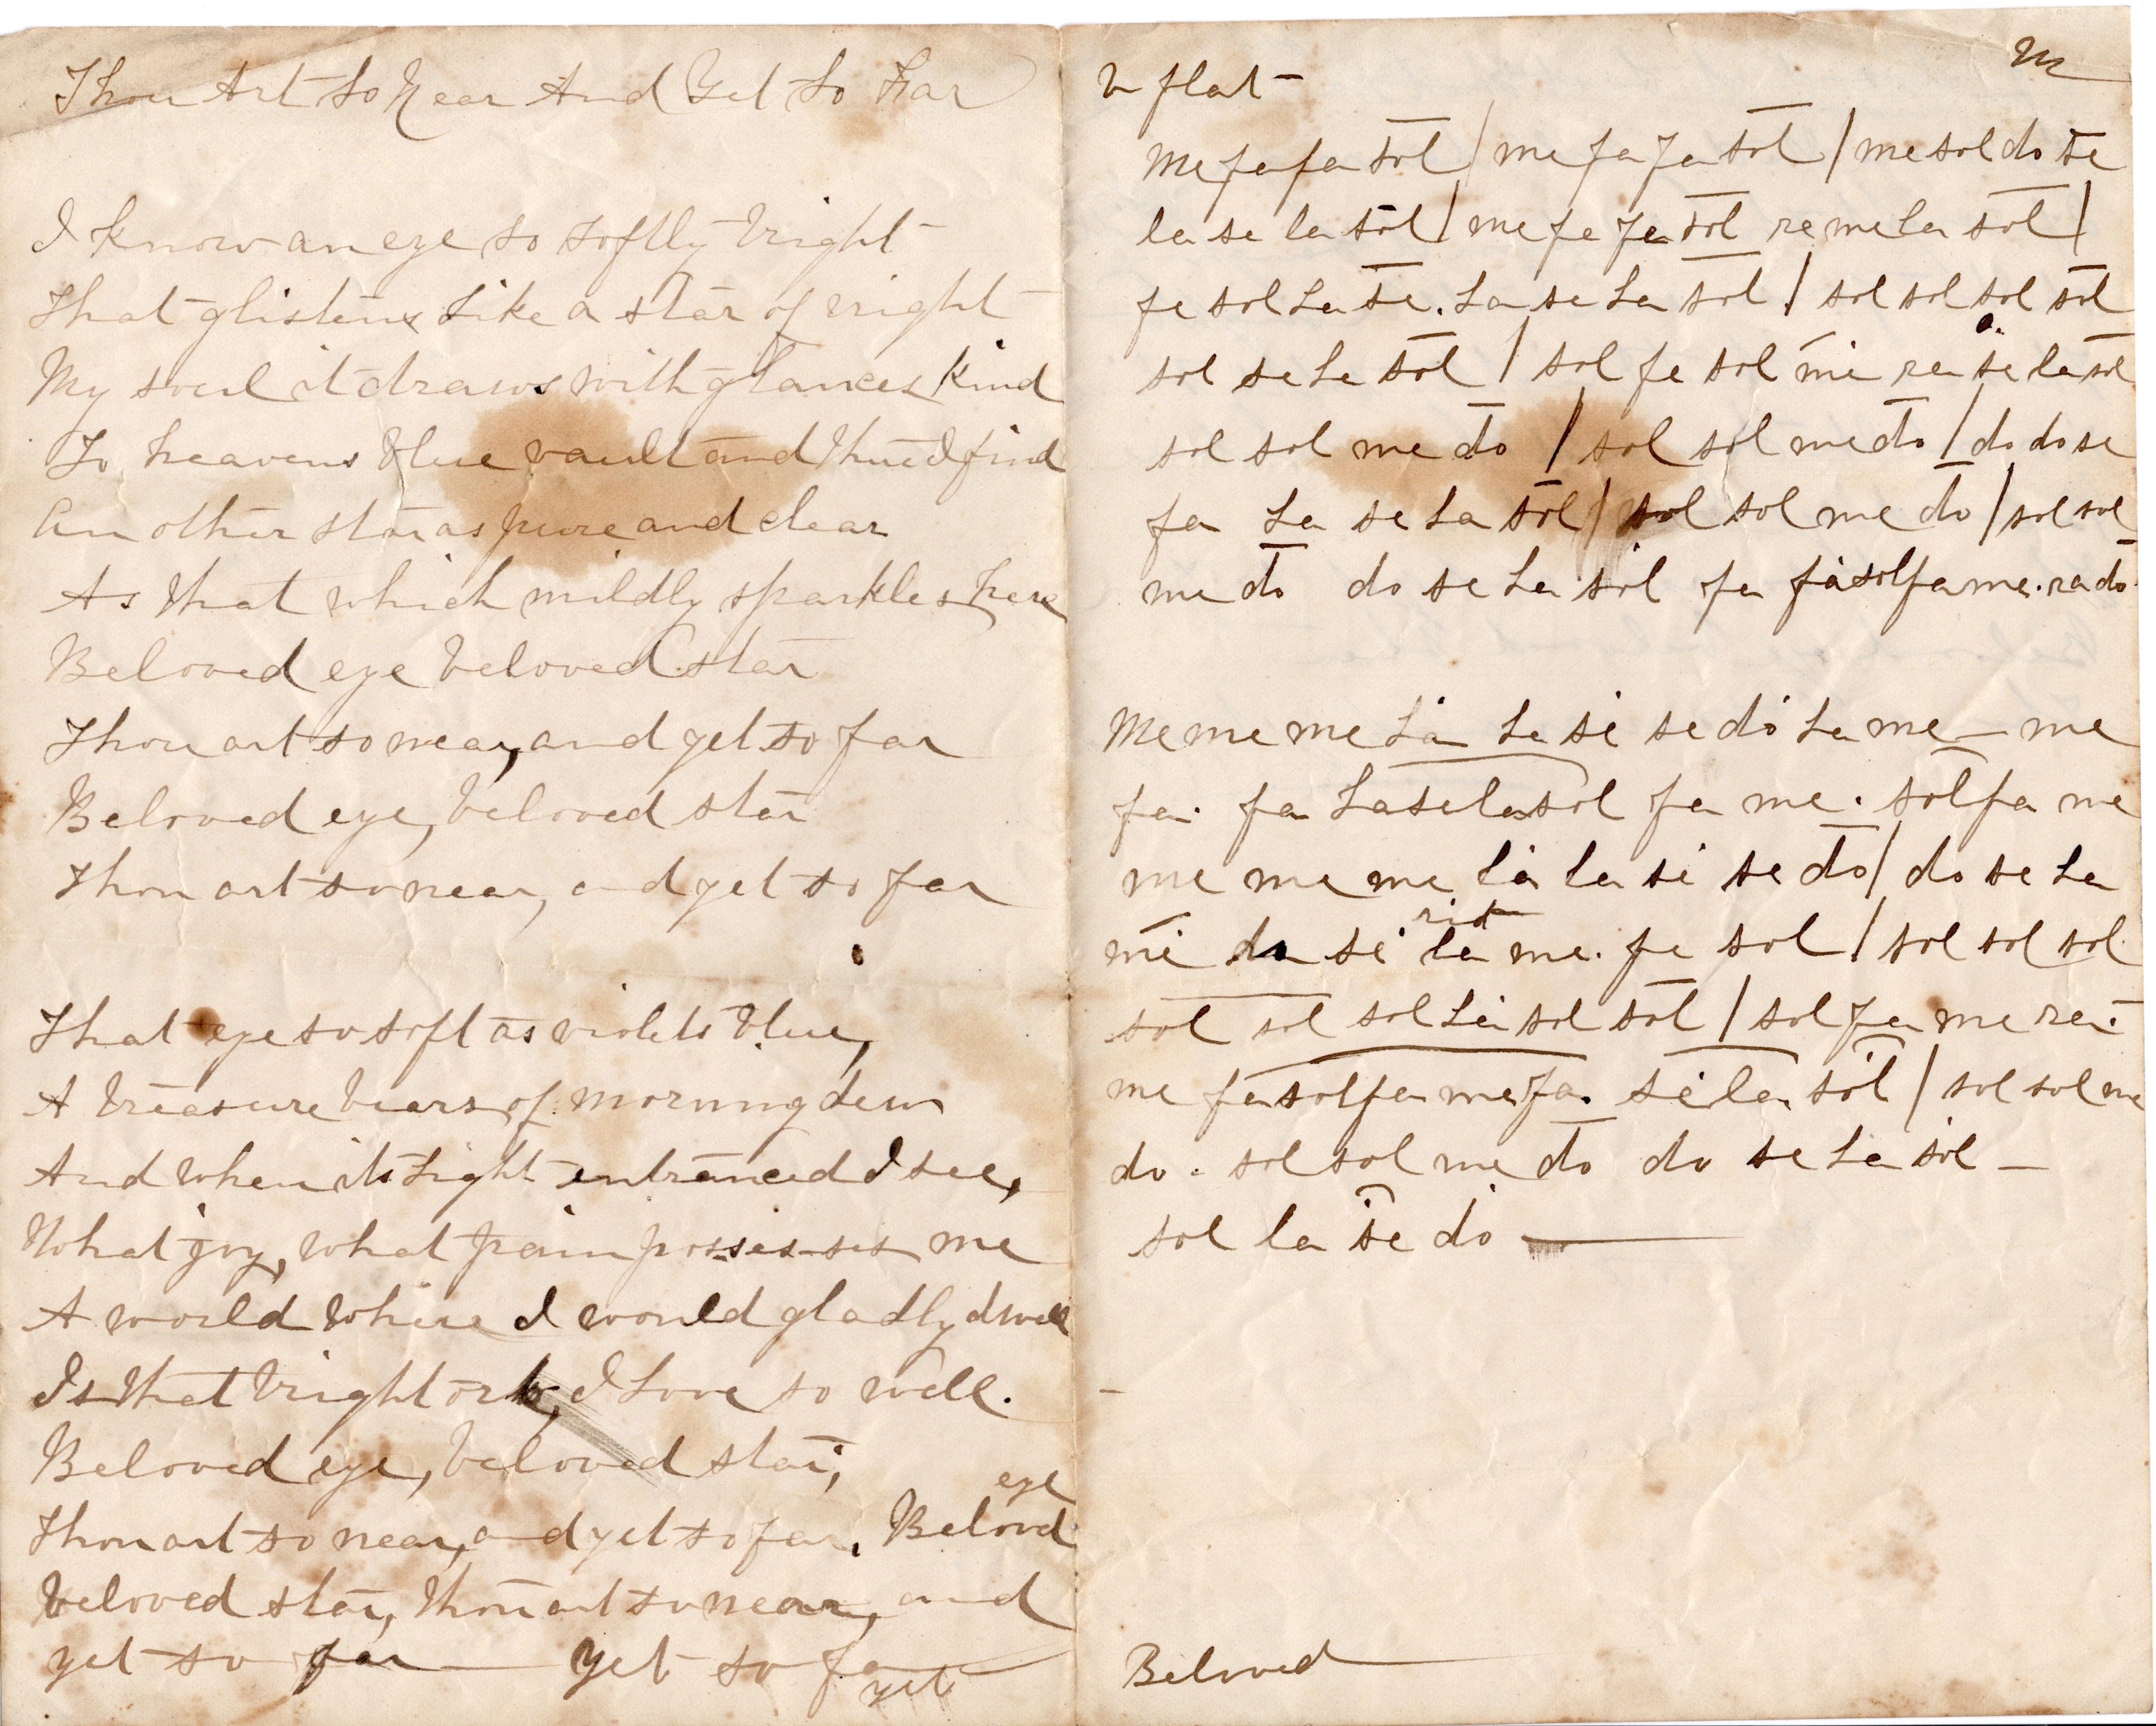 Thou Art So Near And Yet So Far
I know an eye so softly bright
That glistens like a star of night
My soul it draws with glances kind
To heavens blue vault and there I find
Another star as pure and clear
As that which mildly sparkles here
Beloved eye beloved star
Thou art so near, and yet so far
Beloved eye, beloved star
Thou art so near, and yet so far
That eye so soft as violets blue,
A treasure bears of morning dew
And when its light entranced I see,
What joy, what pain possesses me
A world where I would gladly dwell
Is that bright orb, I love so well.
Beloved eye, beloved star,
eye
Thou art so near, and yet so far. Belovd
beloved star, thou art so near, and
yet so far yet so far
yet
b flat
Me fa fa sol / me fa fa sol / me sol do se
la se la sol / me fe fa sol re me la sol /
fe sol la se. la se la sol / sol sol sol sol
sol se la sol / sol fe sol mi ra se la sol
sol sol me do / sol sol me do / do do se
fa la se la sol / sol sol me do / sol sol
me do do se la sol fa fa sol fa me. ra do
Me me me la la se se do la me – me
fa. fa la se la sol fa me. sol fa me
me me me la la se se do / do se la
rit
mi do se la me. fe sol / sol sol sol
sol sol sol la sol sol / sol fa me re.
me fa sol fa me fa. se la sol / sol sol me
do. sol sol me do do se la sol –
sol la se do
Beloved